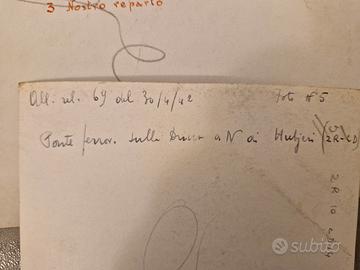 3 Nostro reparto
All. rel. 69 del 30/4/42 Foto n° 5
Ponte ferrov. sulla a N di (2R-CD)
2R 10
subito